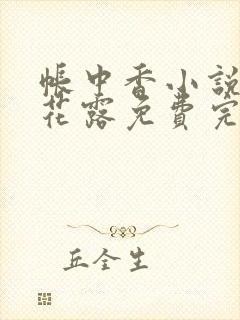 帳中香小說
花露免費完
丘全生